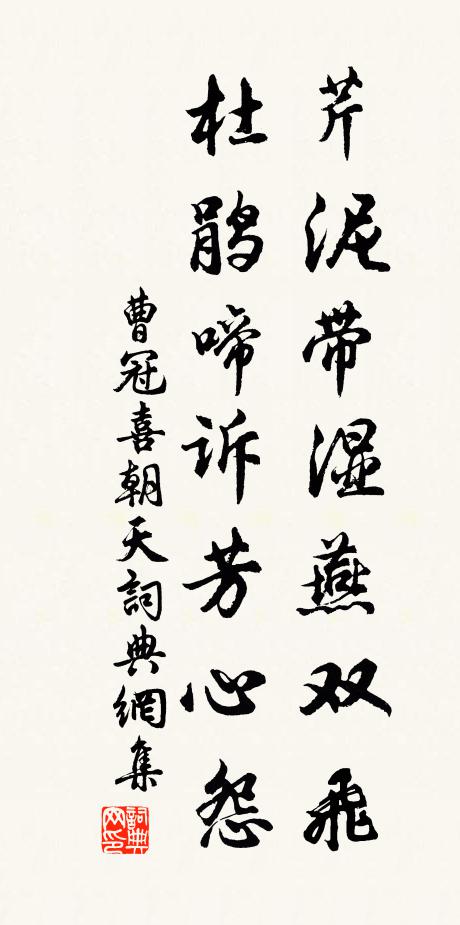 芹泥带湿燕双飞
杜鹃啼诉芳心怨
曹冠喜朝天詞典網集
詞典
网印